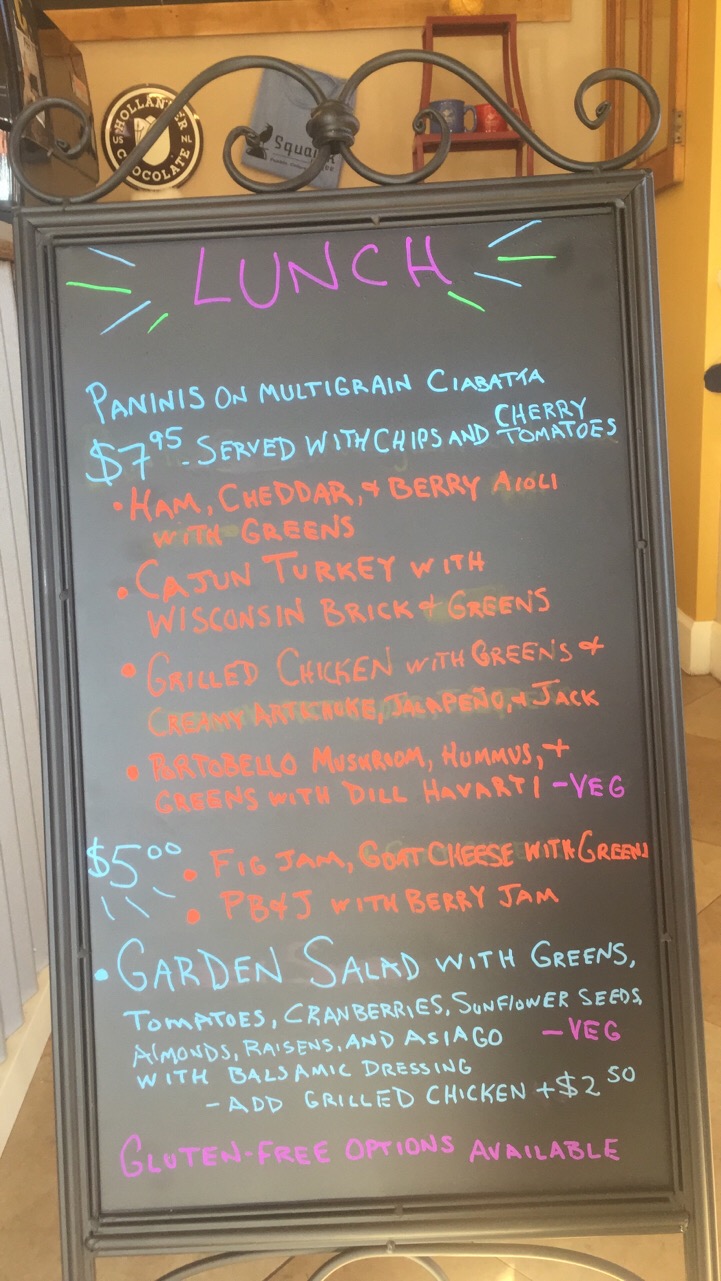 HOLLANDER
US NL
CHOCOLATE
Squa
LUNCH
PANINIS ON MULTIGRAIN CIABATTA
CHERRY
$7.95 - SERVED WITH CHIPS AND TOMATOES
• HAM, CHEDDAR, & BERRY AIOLI
WITH GREENS
• CAJUN TURKEY WITH
WISCONSIN BRICK & GREENS
• GRILLED CHICKEN WITH GREENS &
CREAMY ARTICHOKE, JALAPEÑO, & JACK
• PORTOBELLO MUSHROOM, HUMMUS, +
GREENS WITH DILL HAVARTI - VEG
$5.00 • FIG JAM, GOAT CHEESE WITH GREENS
• PB&J WITH BERRY JAM
• GARDEN SALAD WITH GREENS,
TOMATOES, CRANBERRIES, SUNFLOWER SEEDS,
ALMONDS, RAISENS, AND ASIAGO - VEG
WITH BALSAMIC DRESSING
- ADD GRILLED CHICKEN + $2.50
GLUTEN-FREE OPTIONS AVAILABLE